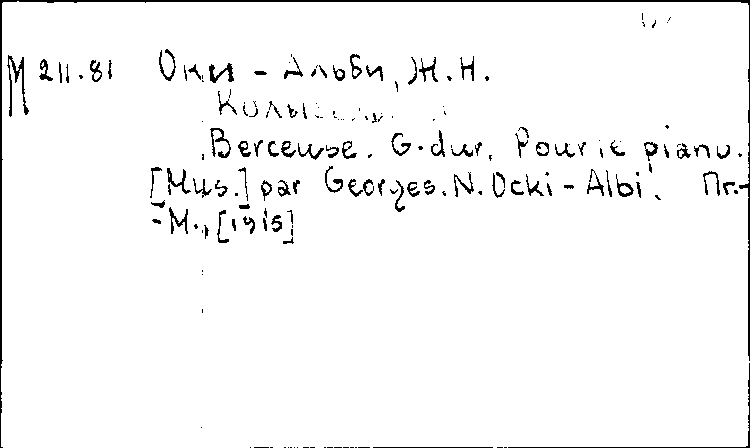 М 211.81 Оки - Альби, Ж.Н.
Berceuse. G-dur. Pour le piano.
[Mus.] par Georges.N.Ocki-Albi. Пг.-
-М., [1915]